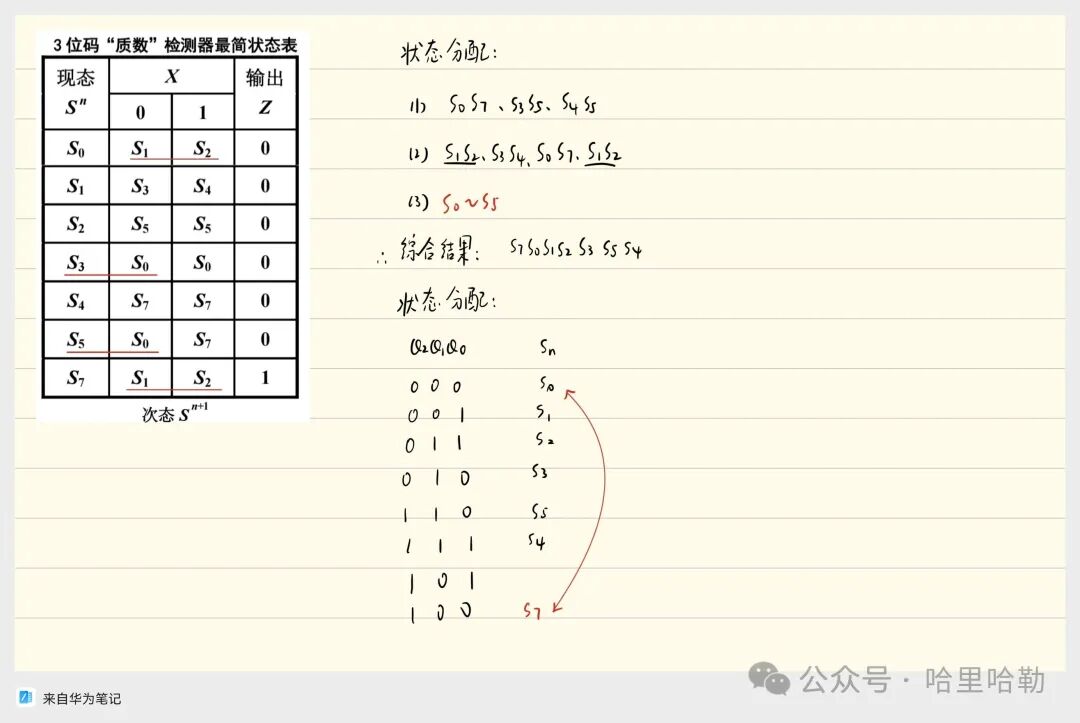 3位码“质数”检测器最简状态表
现态 Sⁿ X 输出 Z
0 1
S₀ S₁ S₂ 0
S₁ S₃ S₄ 0
S₂ S₅ S₅ 0
S₃ S₀ S₀ 0
S₄ S₇ S₇ 0
S₅ S₀ S₇ 0
S₇ S₁ S₂ 1
次态 Sⁿ⁺¹
状态分配:
(1) S₀S₇、S₃S₅、S₄S₅
(2) S₁S₂、S₃S₄、S₀S₇、S₁S₂
(3) S₀~S₅
∴ 综合结果: S₇S₀S₁S₂S₃S₅S₄
状态分配:
Q₂Q₁Q₀ Sₙ
0 0 0 S₀
0 0 1 S₁
0 1 1 S₂
0 1 0 S₃
1 1 0 S₅
1 1 1 S₄
1 0 1
1 0 0 S₇
公众号·哈里哈勒
来自华为笔记